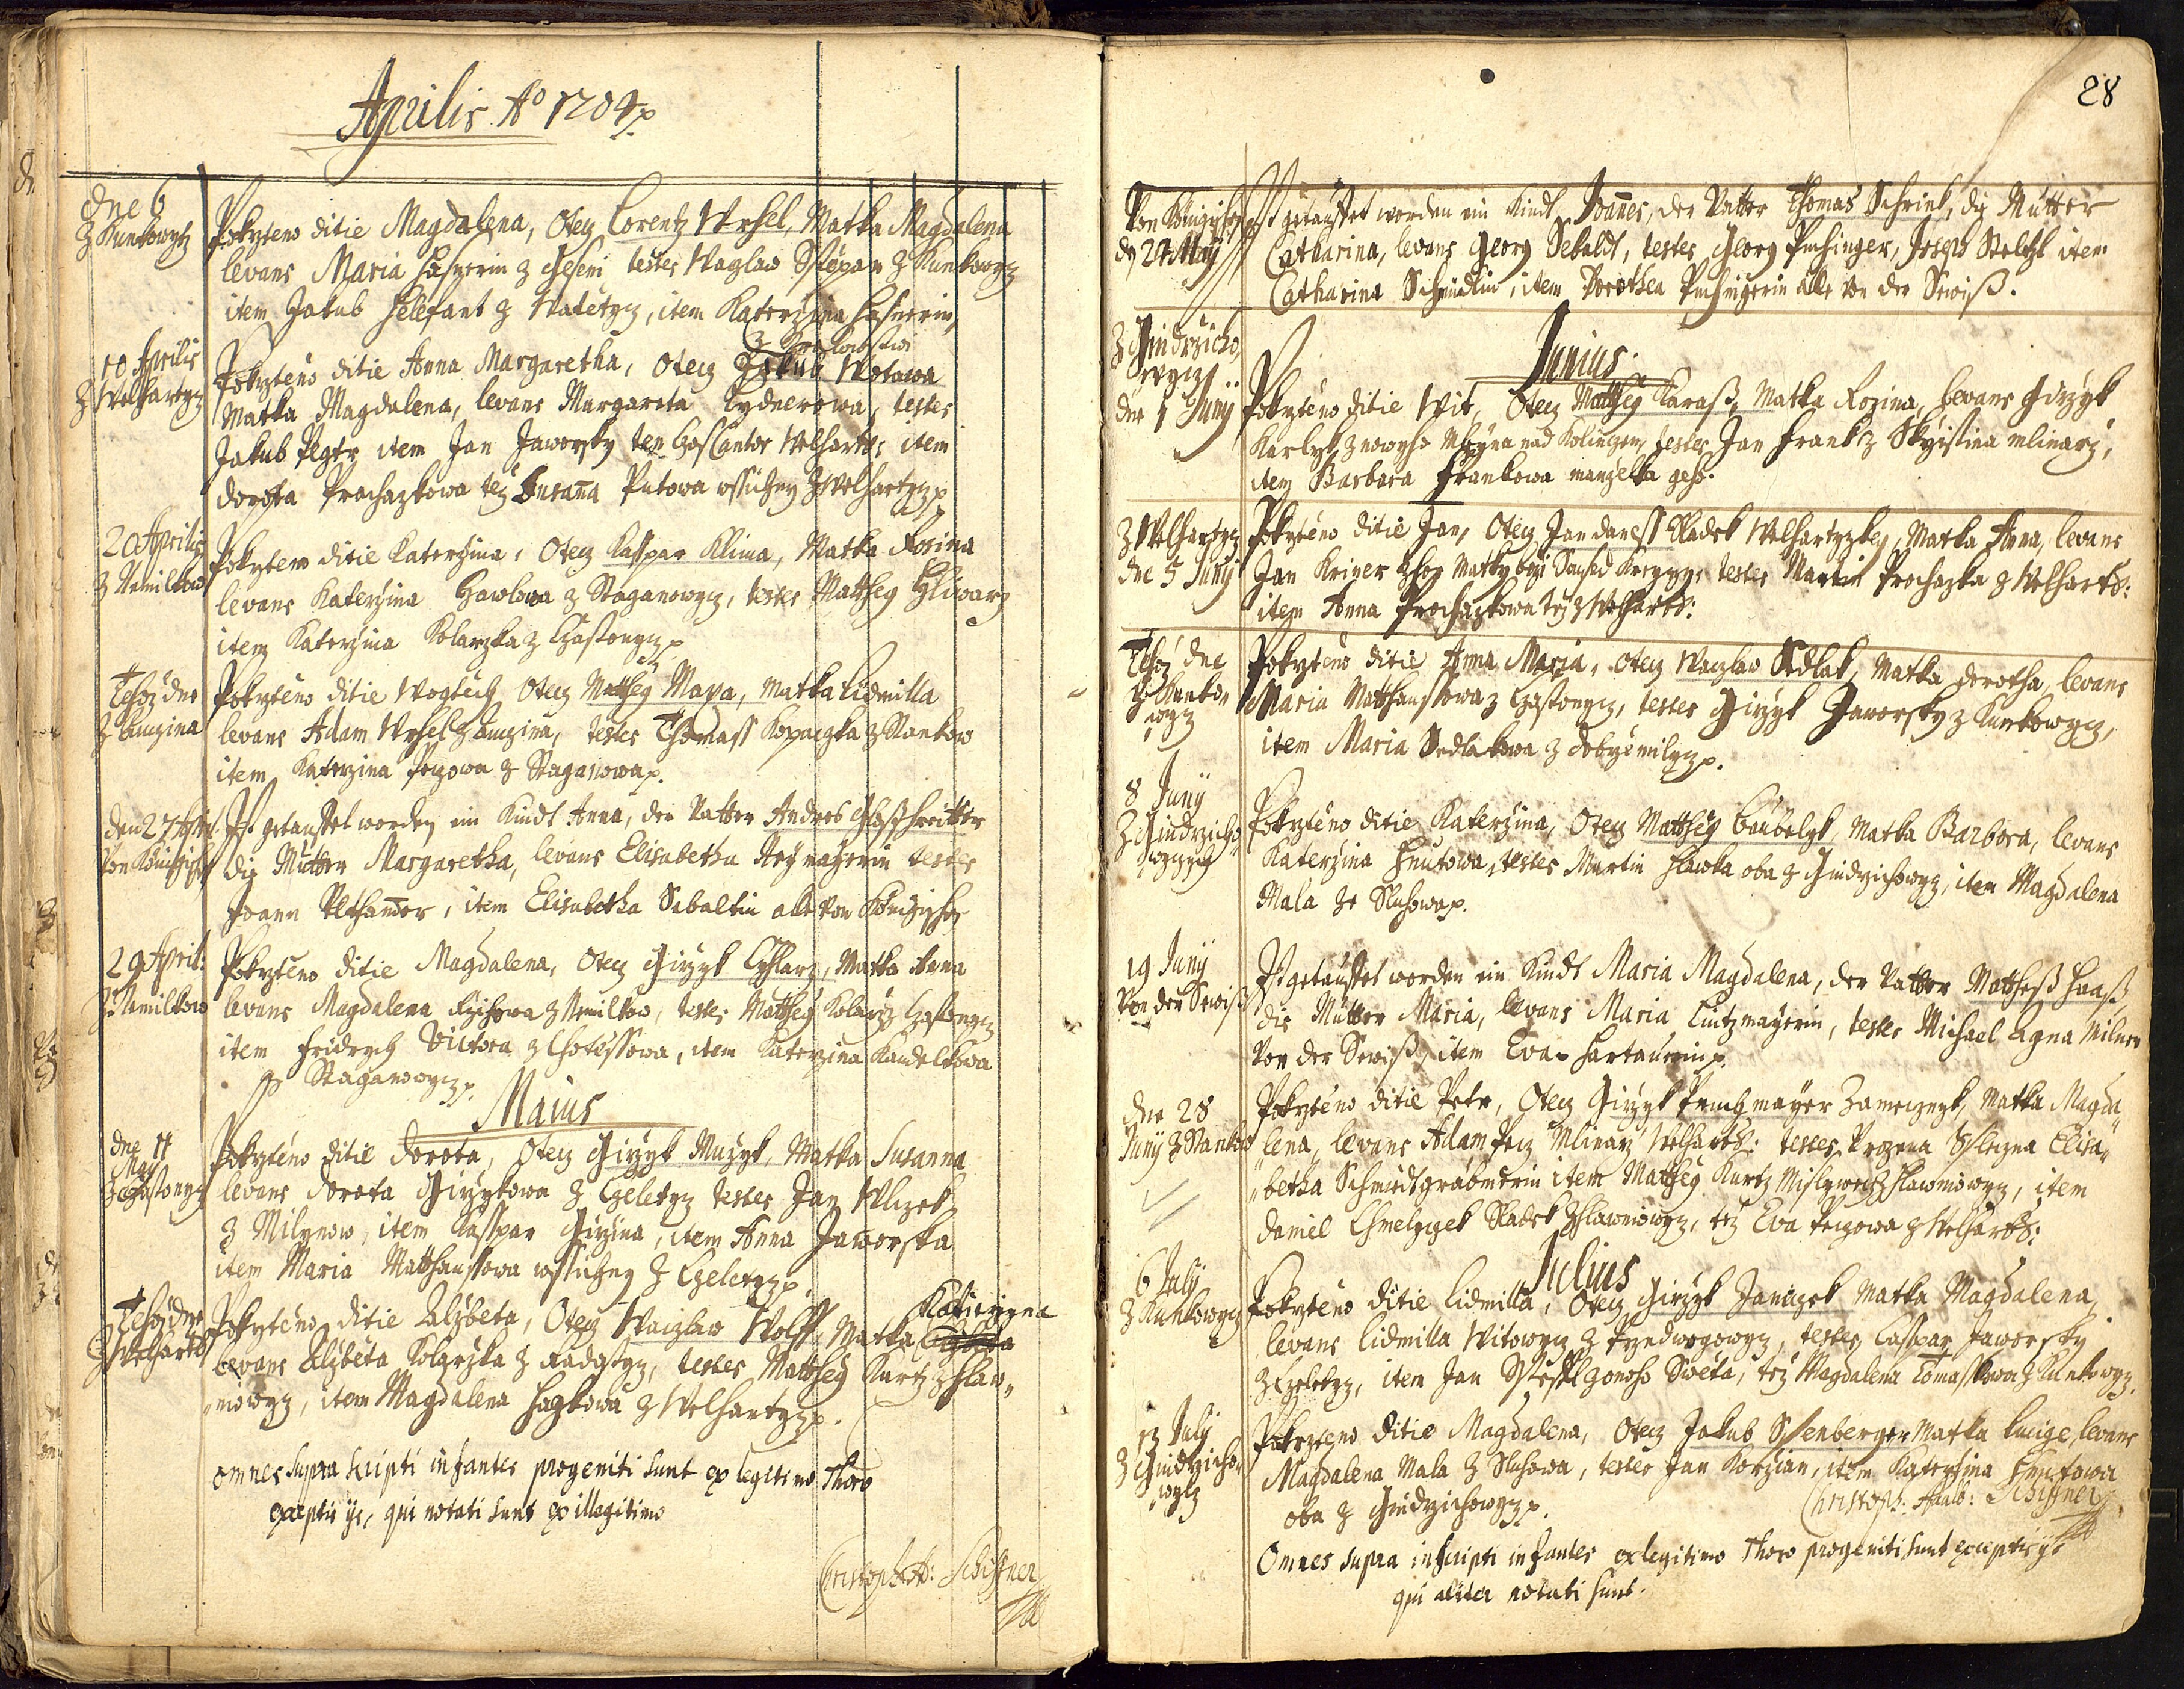 Aprilis Aº 1704
dne 6
z Kunkowycz
Pokrzteno ditie Magdalena, Otecz Lorentz Wrhel, Matka Magdalena
levans Maria Hasnerin z Geseni testes Waczlaw Sstepan z Kunkowycz
item Jakub Helefant z Nadetycz, item Katerzina Hasnerin
10 Aprilis
z Welhartycz
Pokrzteno ditie Anna Margaretha, Otecz Jakub Wotawa
Matka Magdalena, levans Margareta Lydnerowa, testes
Jakub item Jan Jaworsky Cantor Welhart: item
Dorota Prochazkowa tez Susana Putowa wssichny z Welhartycz
20 Aprilis
z Nemilkow
Pokrzteno ditie Katerzina, Otecz Kasspar Klima, Matka Rosina
levans Katerzina Hawlowa z Staganowycz, testes Matthey
item Katerzina Kolarzka z Chastonycz
Tehoz dne
Pokrzteno ditie Wogtiech Otecz Matthey Mapa, Matka Lidmilla
levans Adam Wrhel testes Thomass Kopaczka z Stankow
item Katerzina Peczowa z Staganowa
den 27 April:
Von Künigshoff
Ist getauffet worden ein Kindt Anna, der Vatter Andres
die Mutter Margaretha, levans Elisabetha testes
Joann item Elisabetha Sebaltin alle von Künigshoff
29 April:
z Nemilkow
Pokrzteno ditie Magdalena, Otecz Girzyk Matka Anna
levans Magdalena z Nemilkow, testes Matthey Kolarz z Chastonycz
item Fridrych Victora z Chotessowa, item Katerzina Kandelkowa
z Staganowycz
Maius
dne 11
May
z Chastonycz
Pokrzteno ditie Dorota, Otecz Girzyk Muzyk, Matka Susanna
levans Dorota Girzykowa z Czeletycz testes Jan Wlczek
z Milynow, item Casspar Girzina, item Anna Jaworska
item Maria Matthaussowa wssichny z Czeletycz
Tehoz dne
z Welhart:
Pokrzteno ditie Alzbeta, Otecz Waczlaw Wolff, Matka Katierzyna
levans Alzbeta Kolarzka z Radostycz, testes Matthey Kurtz z Hlaw„
„niowycz, item Magdalena Hagkowa z Welhartycz
Omnes supra scripti infantes progeniti sunt ex legitimo Thoro
exceptis ijs, qui notati sunt ex illegitimo
Christoph: Schiffner
28
Von Künigshoff
den 27 May
Ist getauffet worden ein Kindt Joannes, der Vatter Thomas Schrink, die Mutter
Catharina, levans Georg Sebaldt, testes Georg Puchinger, Joseph Steltzl item
Catharina item Dorothea Puchingerin alle von der Sewiß.
z Gindrzicho„
wycz
dne 1 Juny
Junius
Pokrzteno ditie Wit, Otecz Matthey Karaß, Matka Rozina, levans Girzyk
Karlyk z nowyho Mlyna nad Kolinczem, testes Jan Frank z Skryssina mlinarz,
item Barbara Frankowa manzelka geho.
z Welhartycz
dne 5 Juny
Pokrzteno ditie Jan, Otecz Jan Daness Sladek Welhartyczkey, Matka Anna, levans
Jan testes Martin Prochazka z Welhart:
item Anna Prochazkowa tez z Welhart:
Tehoz dne
z Kunko„
„wycz
Pokrzteno ditie Anna Maria, Otecz Waczlaw Sedlak, Matka Dorotha, levans
Maria Matthaussowa z Chastonycz, testes Girzyk Jaworsky z Kunkowycz,
item Maria Sedlakowa z Dobrzemilycz.
8 Juny
z Gindrzicho„
wyczych
Pokrzteno ditie Katerzina, Otecz Matthey Caubelyk, Matka Barbora, levans
Katerzina Hnutowa, testes Martin Hlawka oba z Gindrzichowycz, item Magdalena
Mala ze Sluhowa.
19 Juny
Von der Sewiß
Ist getauffet worden ein Kindt Maria Magdalena, der Vatter Matthes Haaß
die Mutter Maria, levans Maria Lintzmayerin, testes Michael Milner
Von der Sewiß, item Eva Hartaurin.
dne 28
Juny z Stankow
Pokrzteno ditie Petr, Otecz Girzyk Pruchmayer Zamecznyk, Matka Magda„
„lena, levans Adam Pecz Mlinarz Welhart: testes Elisa„
„betha Schmidtgrabnerin item Matthey Kurtz Myslywecz z Hlawniowycz, item
Daniel Chmelyczek Sladek z Hlawniowycz, tez Eva Peczowa z Welhart:
6 July
z Kunkowycz
Julius
Pokrzteno ditie Lidmilla, Otecz Girzyk Janaczek Matka Magdalena,
levans Lidmilla Witowycz z testes Casspar Jaworsky
z Czeletycz, item Jan z onoho Sweta, tez Magdalena Tomaskowa z Kunkowycz.
13 July
z Gindrzicho„
„wycz
Pokrzteno ditie Magdalena, Otecz Jakub Ssenberger Matka Lucige, levans
Magdalena Mala z Sluhowa, testes Jan Korzian, item Katerzina Hnutowa
oba z Gindrzichowycz.
Christoph: Schiffner
Omnes supra inscripti infantes ex legitimo Thoro progeniti sunt exceptis ijs
qui aliter notati sunt.